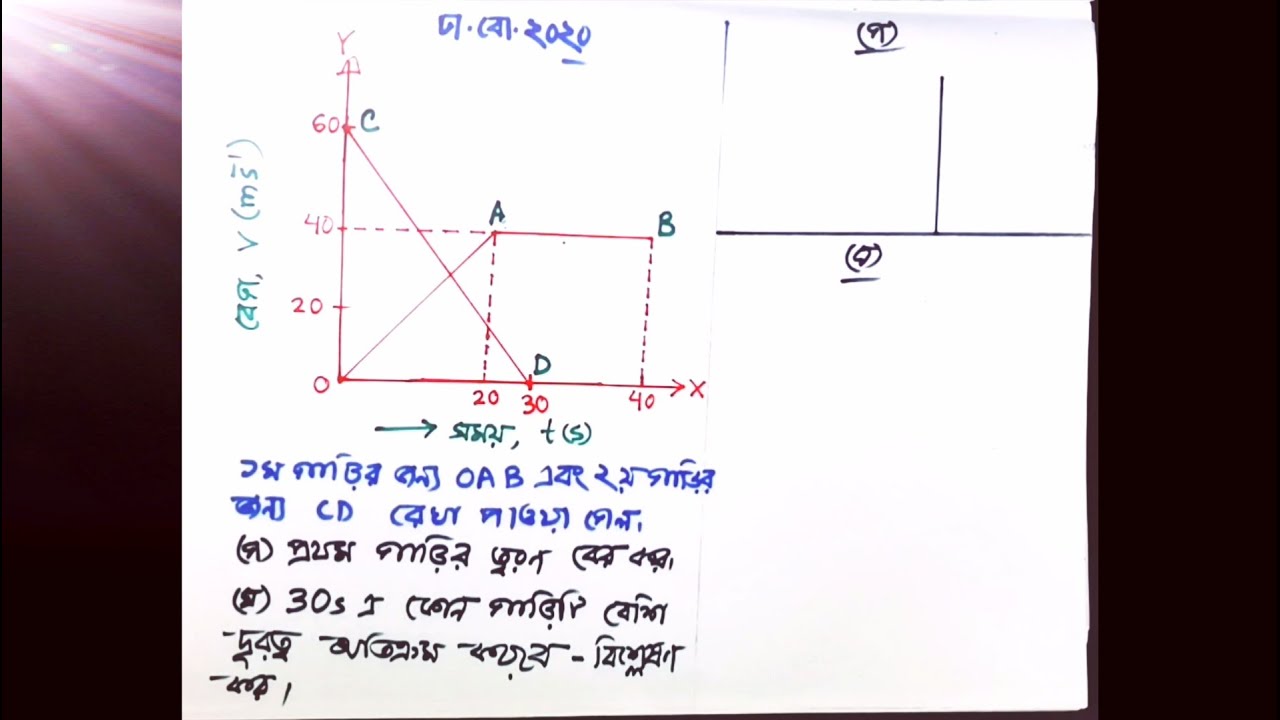 ঢা. বো. ২০২০
(গ)
(ঘ)
Y
60 C
40
A
B
20
বেগ, V (ms⁻¹)
O
D
20 30 40 X
→ সময়, t(s)
১ম গাড়ির জন্য OAB এবং ২য় গাড়ির
জন্য CD রেখা পাওয়া গেল।
(গ) প্রথম গাড়ির ত্বরণ বের কর।
(ঘ) 30s এ কোন গাড়িটি বেশি
দূরত্ব অতিক্রম করবে - বিশ্লেষণ
কর।